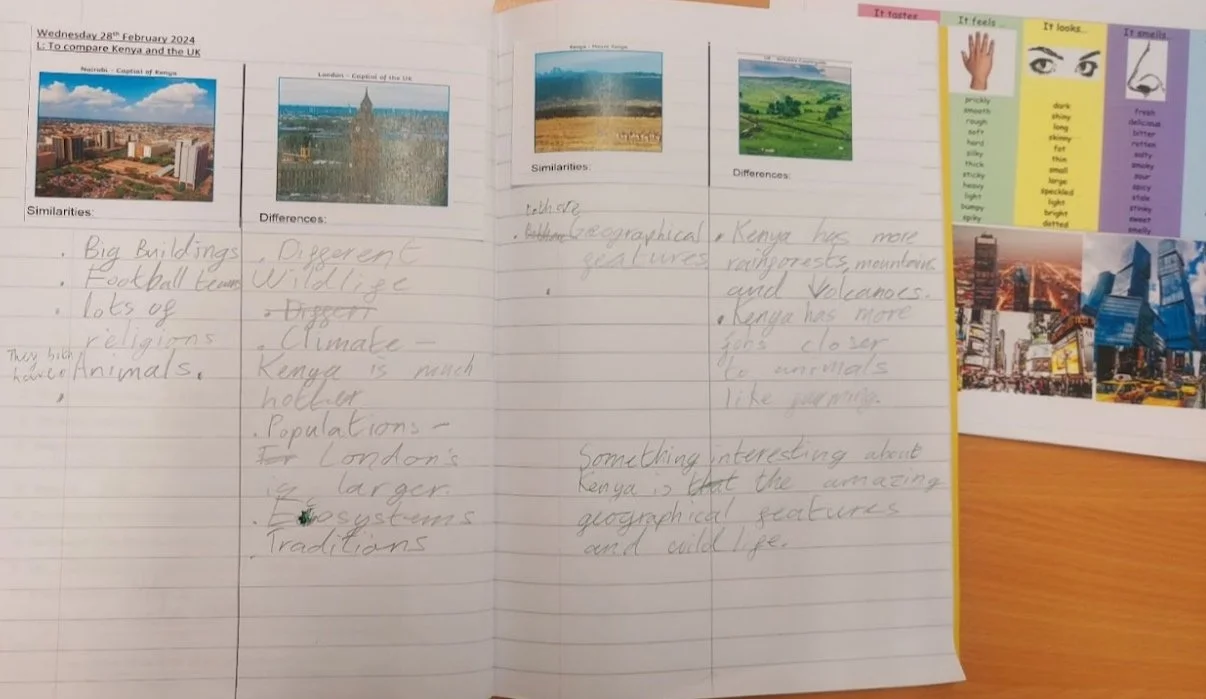 Wednesday 28th February 2024
L: To compare Kenya and the UK
Nairobi - Captial of Kenya
London - Captial of the UK
Similarities:
Differences:
. Big Buildings
. Football teams
. lots of
religions
They both
have
Animals.
. Different
Wildlife
. Climate -
Kenya is much
hotter
. Populations -
London's
is larger.
. Ecosystems
. Traditions
Kenya - Mount Kenya
Similarities:
Differences:
. Geographical
features
. Kenya has more
rainforests, mountains
and Volcanoes.
. Kenya has more
jobs closer
to animals
like farming.
Something interesting about
Kenya is that the amazing
geographical features
and wild life.
It tastes
It feels...
prickly
smooth
rough
soft
hard
silky
thick
sticky
heavy
light
bumpy
spiky
It looks...
dark
shiny
long
skinny
fat
thin
small
large
speckled
light
bright
dotted
It smells...
fresh
delicious
bitter
rotten
salty
smoky
sour
spicy
stale
stinky
sweet
smelly